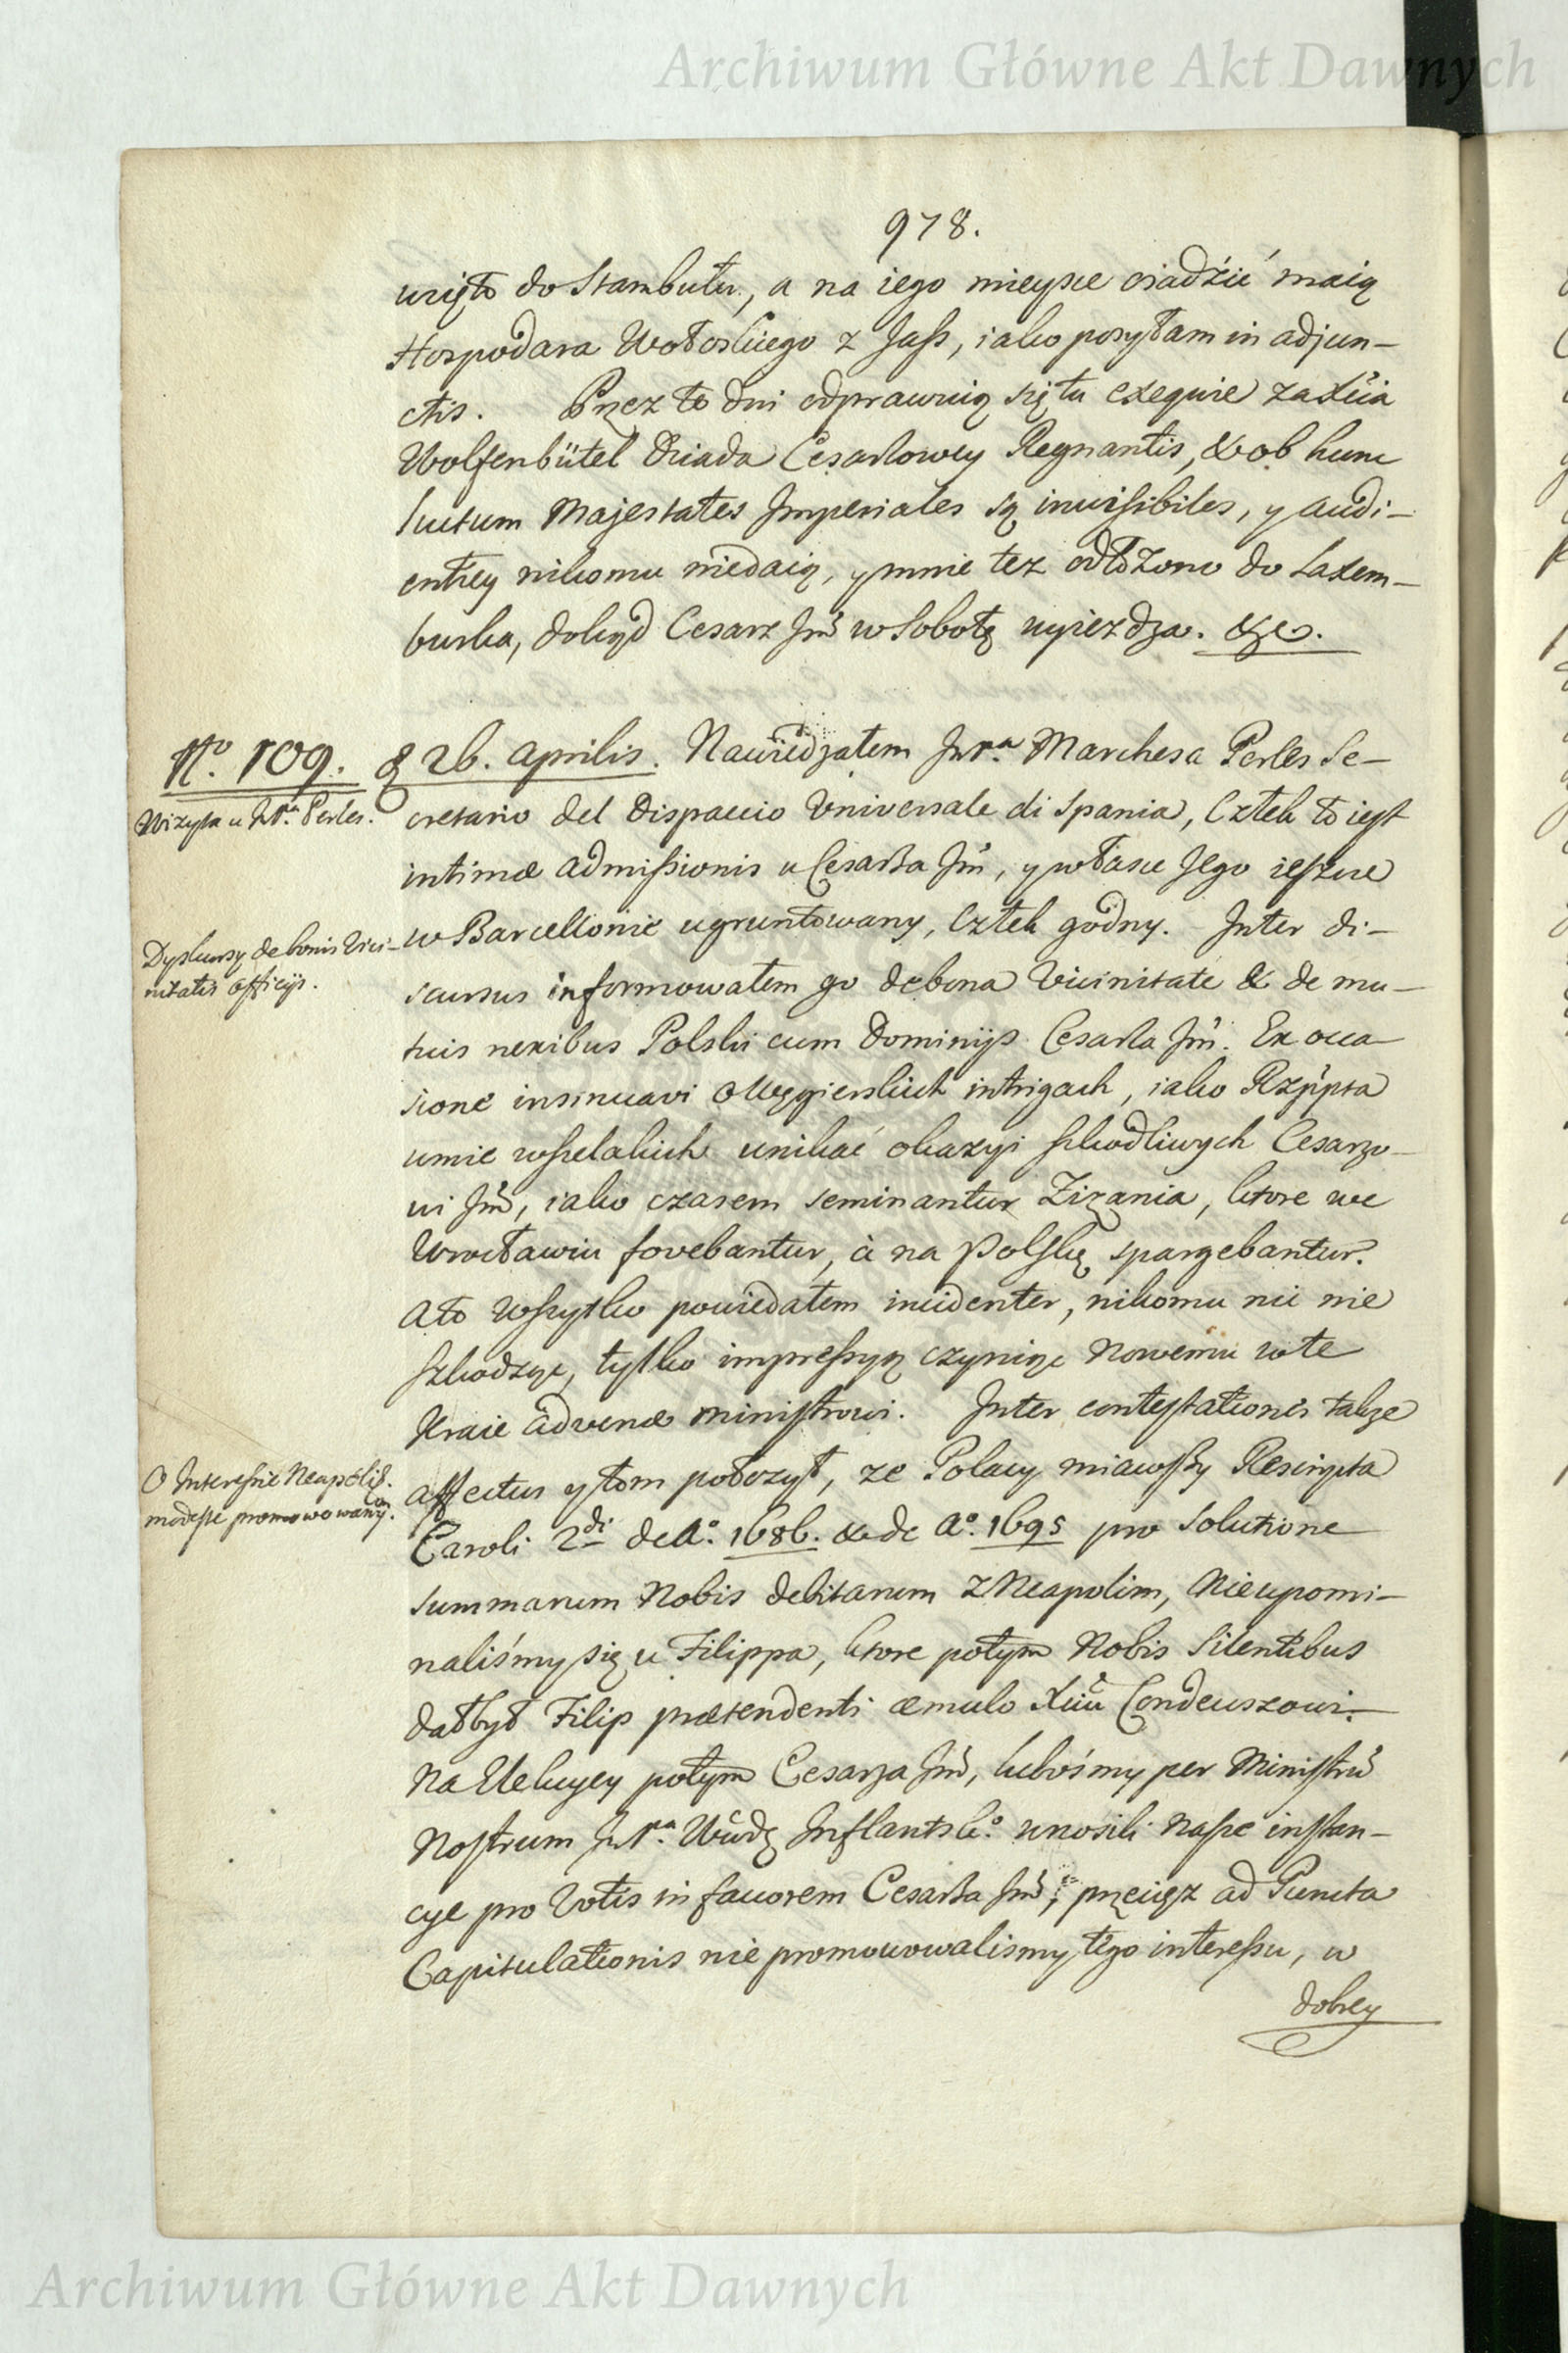 Archiwum Główne Akt Dawnych
978.
wzięto do Stambułu, a na iego mieysce osadźić maią
Hospodara Wołoskiego z Jass, iako posyłam in adjun-
ctis. Przez te dni odprawuią się tu exequie za Xcia
Wolfenbütel Dziada Cesarzowey Regnantis, & ob hunc
luctum Majestates Imperiales są invisibiles, y audi-
entiey nikomu niedaią, y mnie tez odłożono do Laxem-
burka, dokąd Cesarz Jmć w Sobotę wyiezdza. &c.
No. 109.
Wizyta u JPa. Perles.
Dyskursy de bonis Vici-
nitatis officijs.
O Interessie Neapolit.
modeste promowowany.
26. Aprilis. Nawiedzałem JPa. Marchesa Perles Se-
cretario del Dispaccio Universale di Spania, Człek to iest
intimæ admissionis u Cesarza Jmć, y w łasce Jego ieszcze
w Barcellonie ugruntowany, Człek godny. Inter di-
scursus informowałem go de bona Vicinitate & de mu-
tuis nexibus Polski cum Dominijs Cesarza Jmć. Ex occa-
sione insinuavi o Węgierskich intrigach, iako Rzpspta
umie wszelakich unikać okazyi szkodliwych Cesarzo-
wi Jmć, iako czasem seminantur Zizania, ktore we
Wrocławiu fovebantur, à na Polskę spargebantur.
A to wszytko powiedałem incidenter, nikomu nic nie
szkodząc, tylko impressyą czyniąc Nowemu w te
Kraie advenæ Ministrowi. Inter contestationes takze
affectus y tom położył, ze Polacy miawszy Rescripta
Caroli 2di de Ao. 1686. & de Ao. 1695 pro Solutione
summarum Nobis debitarum z Neapolim, Nieupomi-
naliśmy się u Filippa, ktore potym Nobis Silentibus
dał był Filip prætendenti æmulo Xciu Condeuszowi.
Na Elekcyey potym Cesarza Jmć, lubośmy per Ministrum
Nostrum JPa. Wwdę Inflantsko. wnosili nasze instan-
cye pro Votis in favorem Cesarza Jmć, przecięz ad Puncta
Capitulationis nie promowowalismy tego interessu, w
dobrey
Archiwum Główne Akt Dawnych